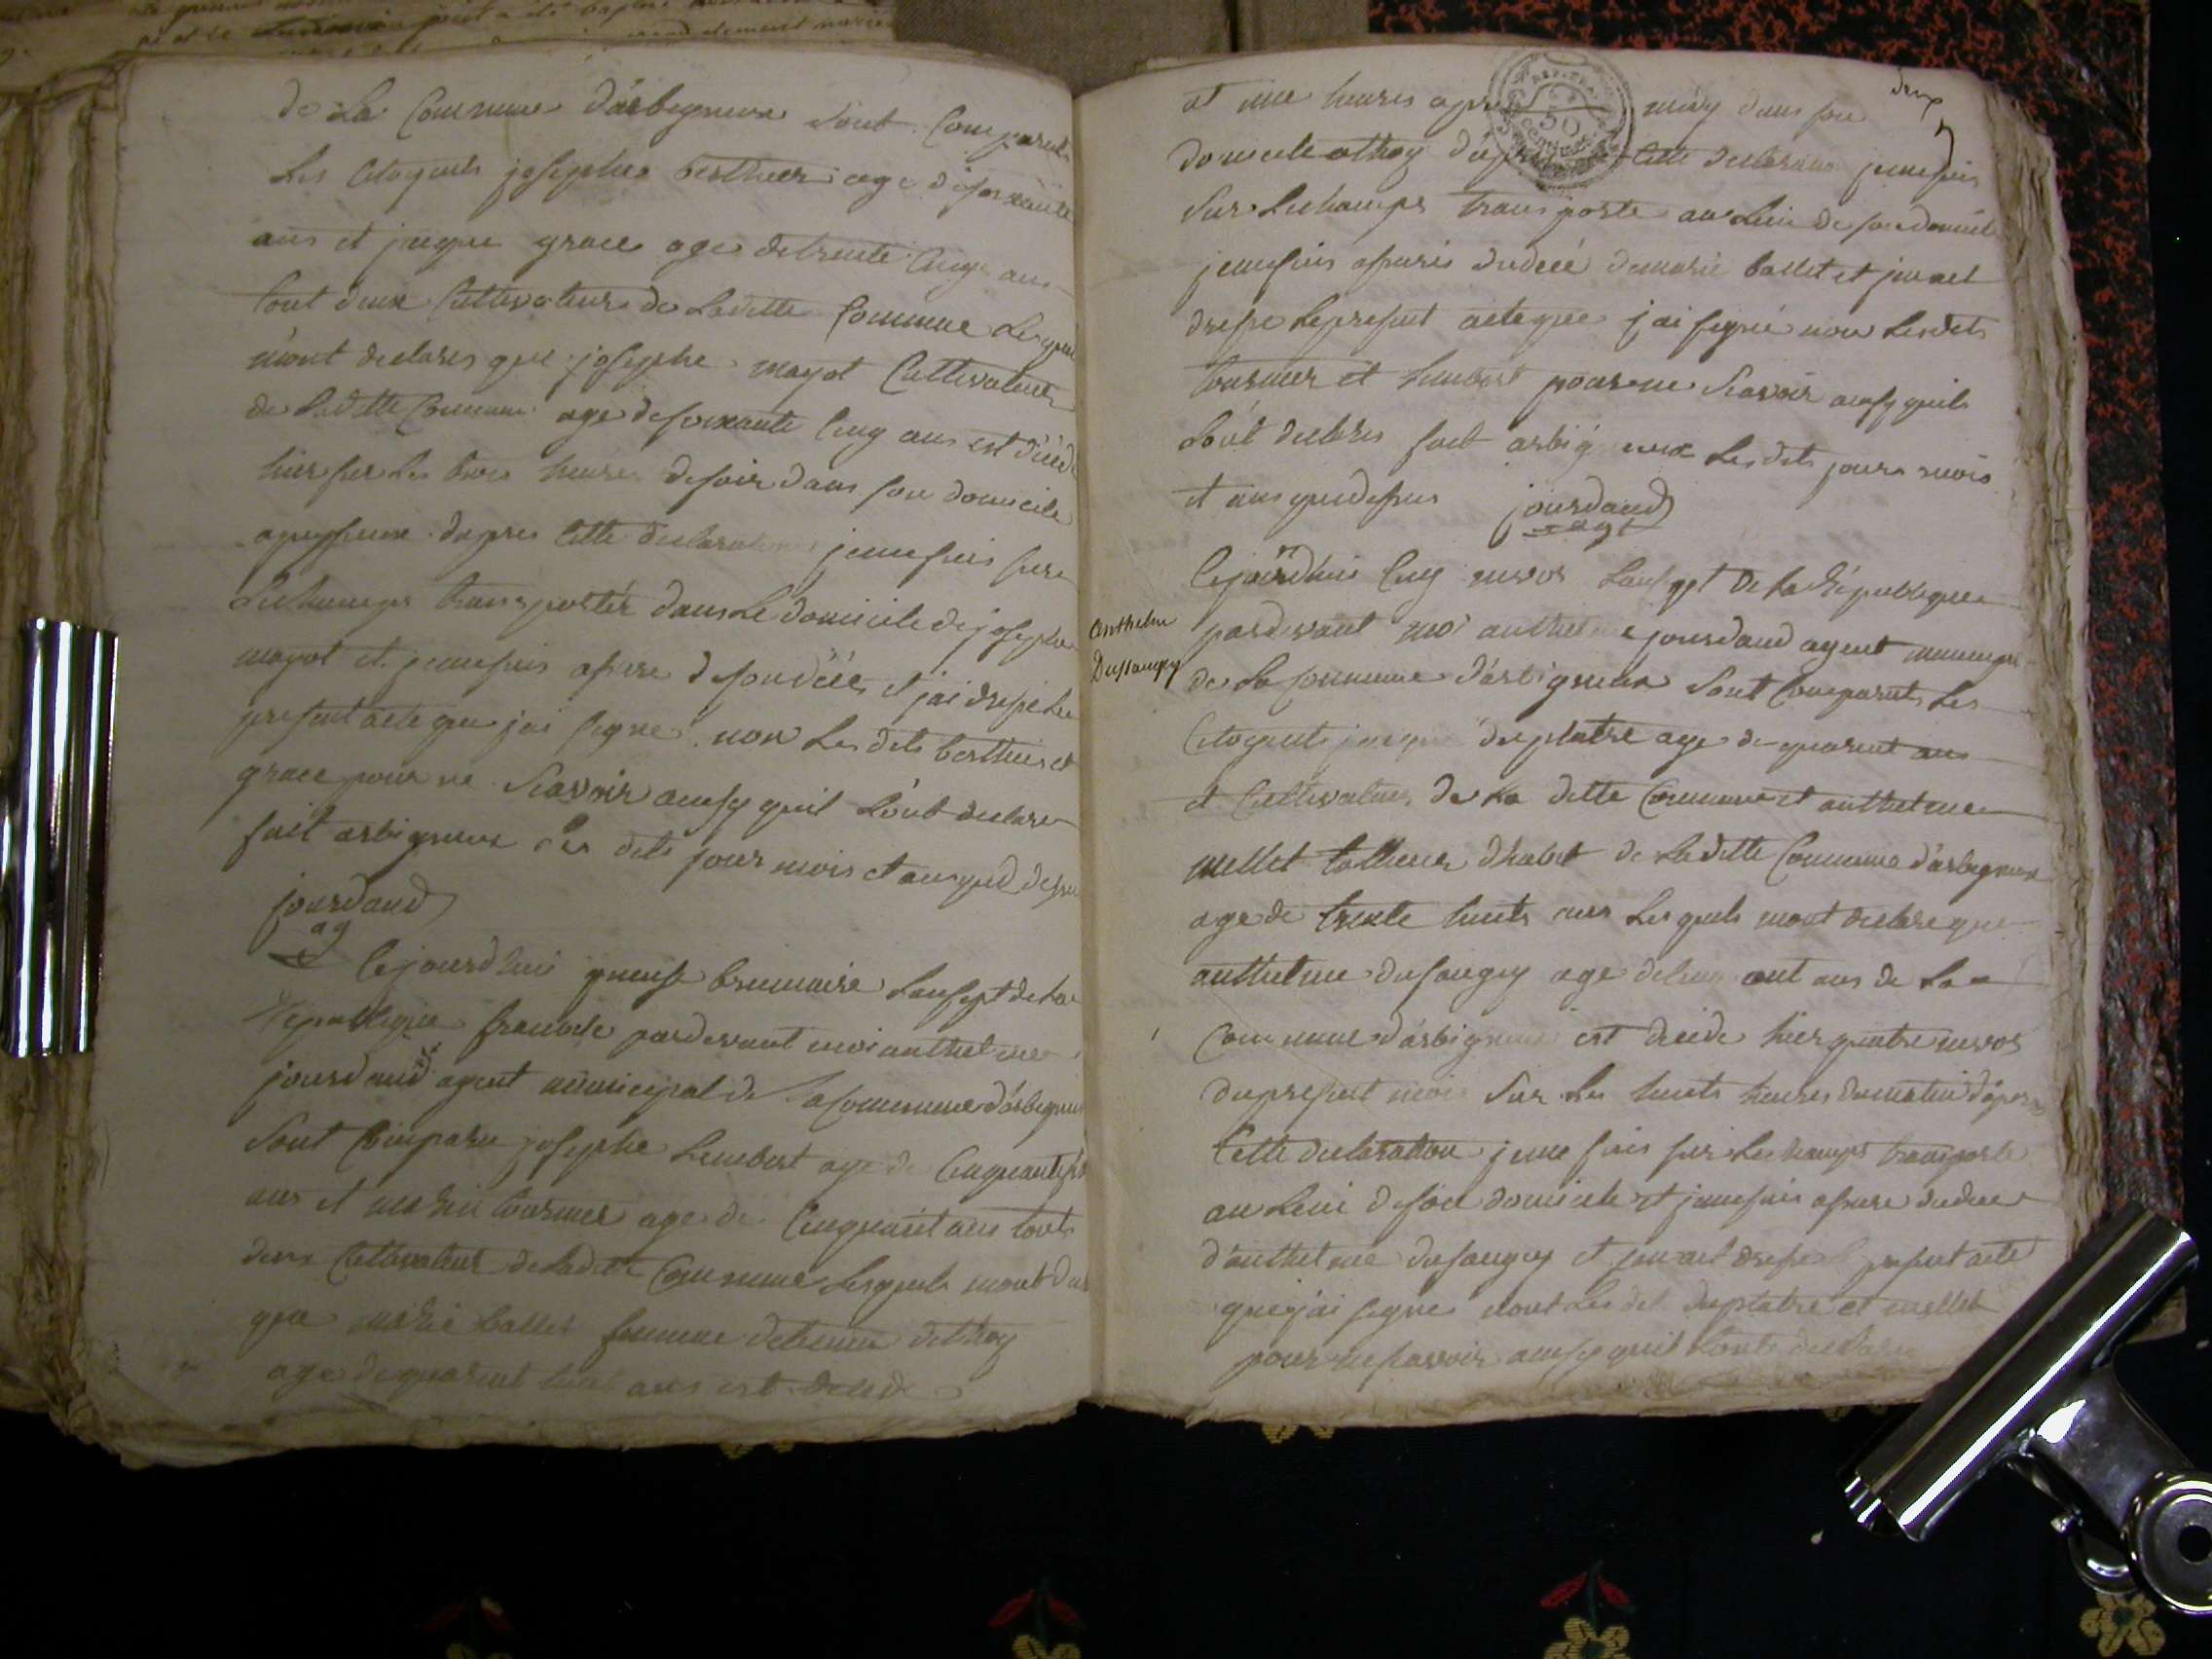 de La Commune d'arbignieux sont Comparuts
Les Citoyents josephe berthier age de soixante
ans et jacque grace age de trente Cinq ans
tout deux Cultivateurs de Laditte Commune Lesquels
m'ont declares que josephe mayot Cultivateur
de Laditte Commune age de soixante Cinq ans est décéde
hier sur Les trois heures de soir dans son domicile
a peyssieux dapres Cette declaration je me suis sur
Lechamps transportér dans Le domicile de josephe
mayot et je me suis assure de son décés et j'ai dressé Le
present acte que jai signé non Les dits berthier et
grace pour ne scavoir ainsy quil L'ont declare
fait arbignieux Les dits jour mois et an que dessus
jourdand
ag
Cejourdhui brumaire Lan sept de La
République francoise pardevant moi anthelme
jourdand agent municipal de La Commune d'arbignieux
sont Comparu josephe humbert age de Cinquante
ans et tournier age de Cinquant ans touts
deux Cultivateur de Laditte Commune Lesquels mont
que marie ballet femme de
age de quarent huit ans est decede
deux
et une heures apres midy dans son
domicile a thoy d'apres Cette declaration je me suis
sur Lechamps transporte au Lieu de son domicile
je me suis assurés du décé de marie ballet et jen aet
dresse Le present acte que j'ai signé non Lesdits
tournier et humbert pour ne scavoir ainsy quils
L'ont declares fait arbignieux Les dits jours mois
et ans que dessus jourdand
ag
Cejourdhui Cinq nivos Lan sept de La République
Anthelme
Dussaugey
pardevant moi anthelme jourdand agent municipal
de La Commune d'arbignieux sont Comparuts Les
Citoyents jacque duplatre age de quarent ans
et Cultivateur de La ditte Commune et anthelme
mellet tallieur dhabit de Laditte Commune d'arbignieux
age de trente huits ans Lesquels mont declare que
anthelme dusaugey age de ans de La
Commune d'arbignieux est decede hier quatre nivos
du present mois sur Les huits heures du matin d'apres
Cette declaration je me suis sur Lechamps transporte
au Lieu de son domicile et je me suis assure du dece
d'anthelme dusaugey et jen aet dresse Le present acte
que j'ai signe nont Les dit duplatre et mellet
pour ne savoir ainsy quil L'onts declare